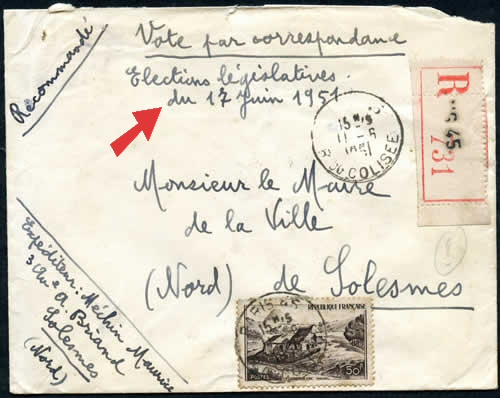 Recommandé
Vote par correspondance
Elections législatives
du 17 juin 1951
R
45
731
15H15
11-6
1951
COLISEE
Monsieur le Maire
de la Ville
(Nord) de Solesmes
Expéditeur: Méchin Maurice
3 A. Briand
Solesmes
(Nord)
PARIS 45
RÉPUBLIQUE FRANÇAISE
POSTES
50F